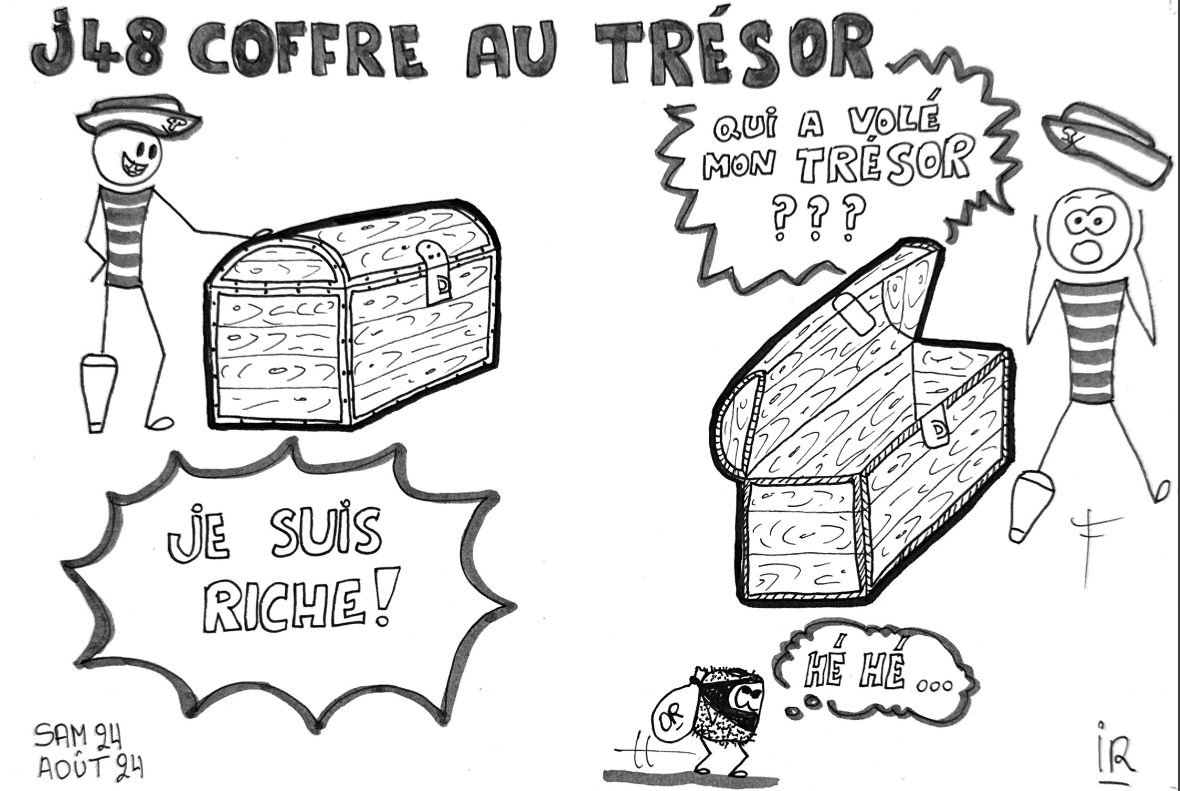 J48 COFFRE AU TRÉSOR
QUI A VOLÉ
MON TRÉSOR
???
JE SUIS
RICHE!
HÉ HÉ ...
OR
SAM 24
AOÛT 24
iR